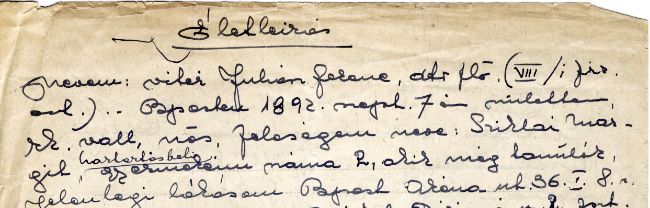 Életleirás
Nevem: vitéz Julier Ferenc, (VIII/i fiz.
oszt.).. Bpesten 1892. szept. 7 én születtem,
rk. vall, nős, feleségem neve: Sziklai Mar-
háztartásbeli
git, gyermekeim száma 2, akik még tanulók,
Jelenlegi lakásom Bpest Aréna ut. 36. I. 8.